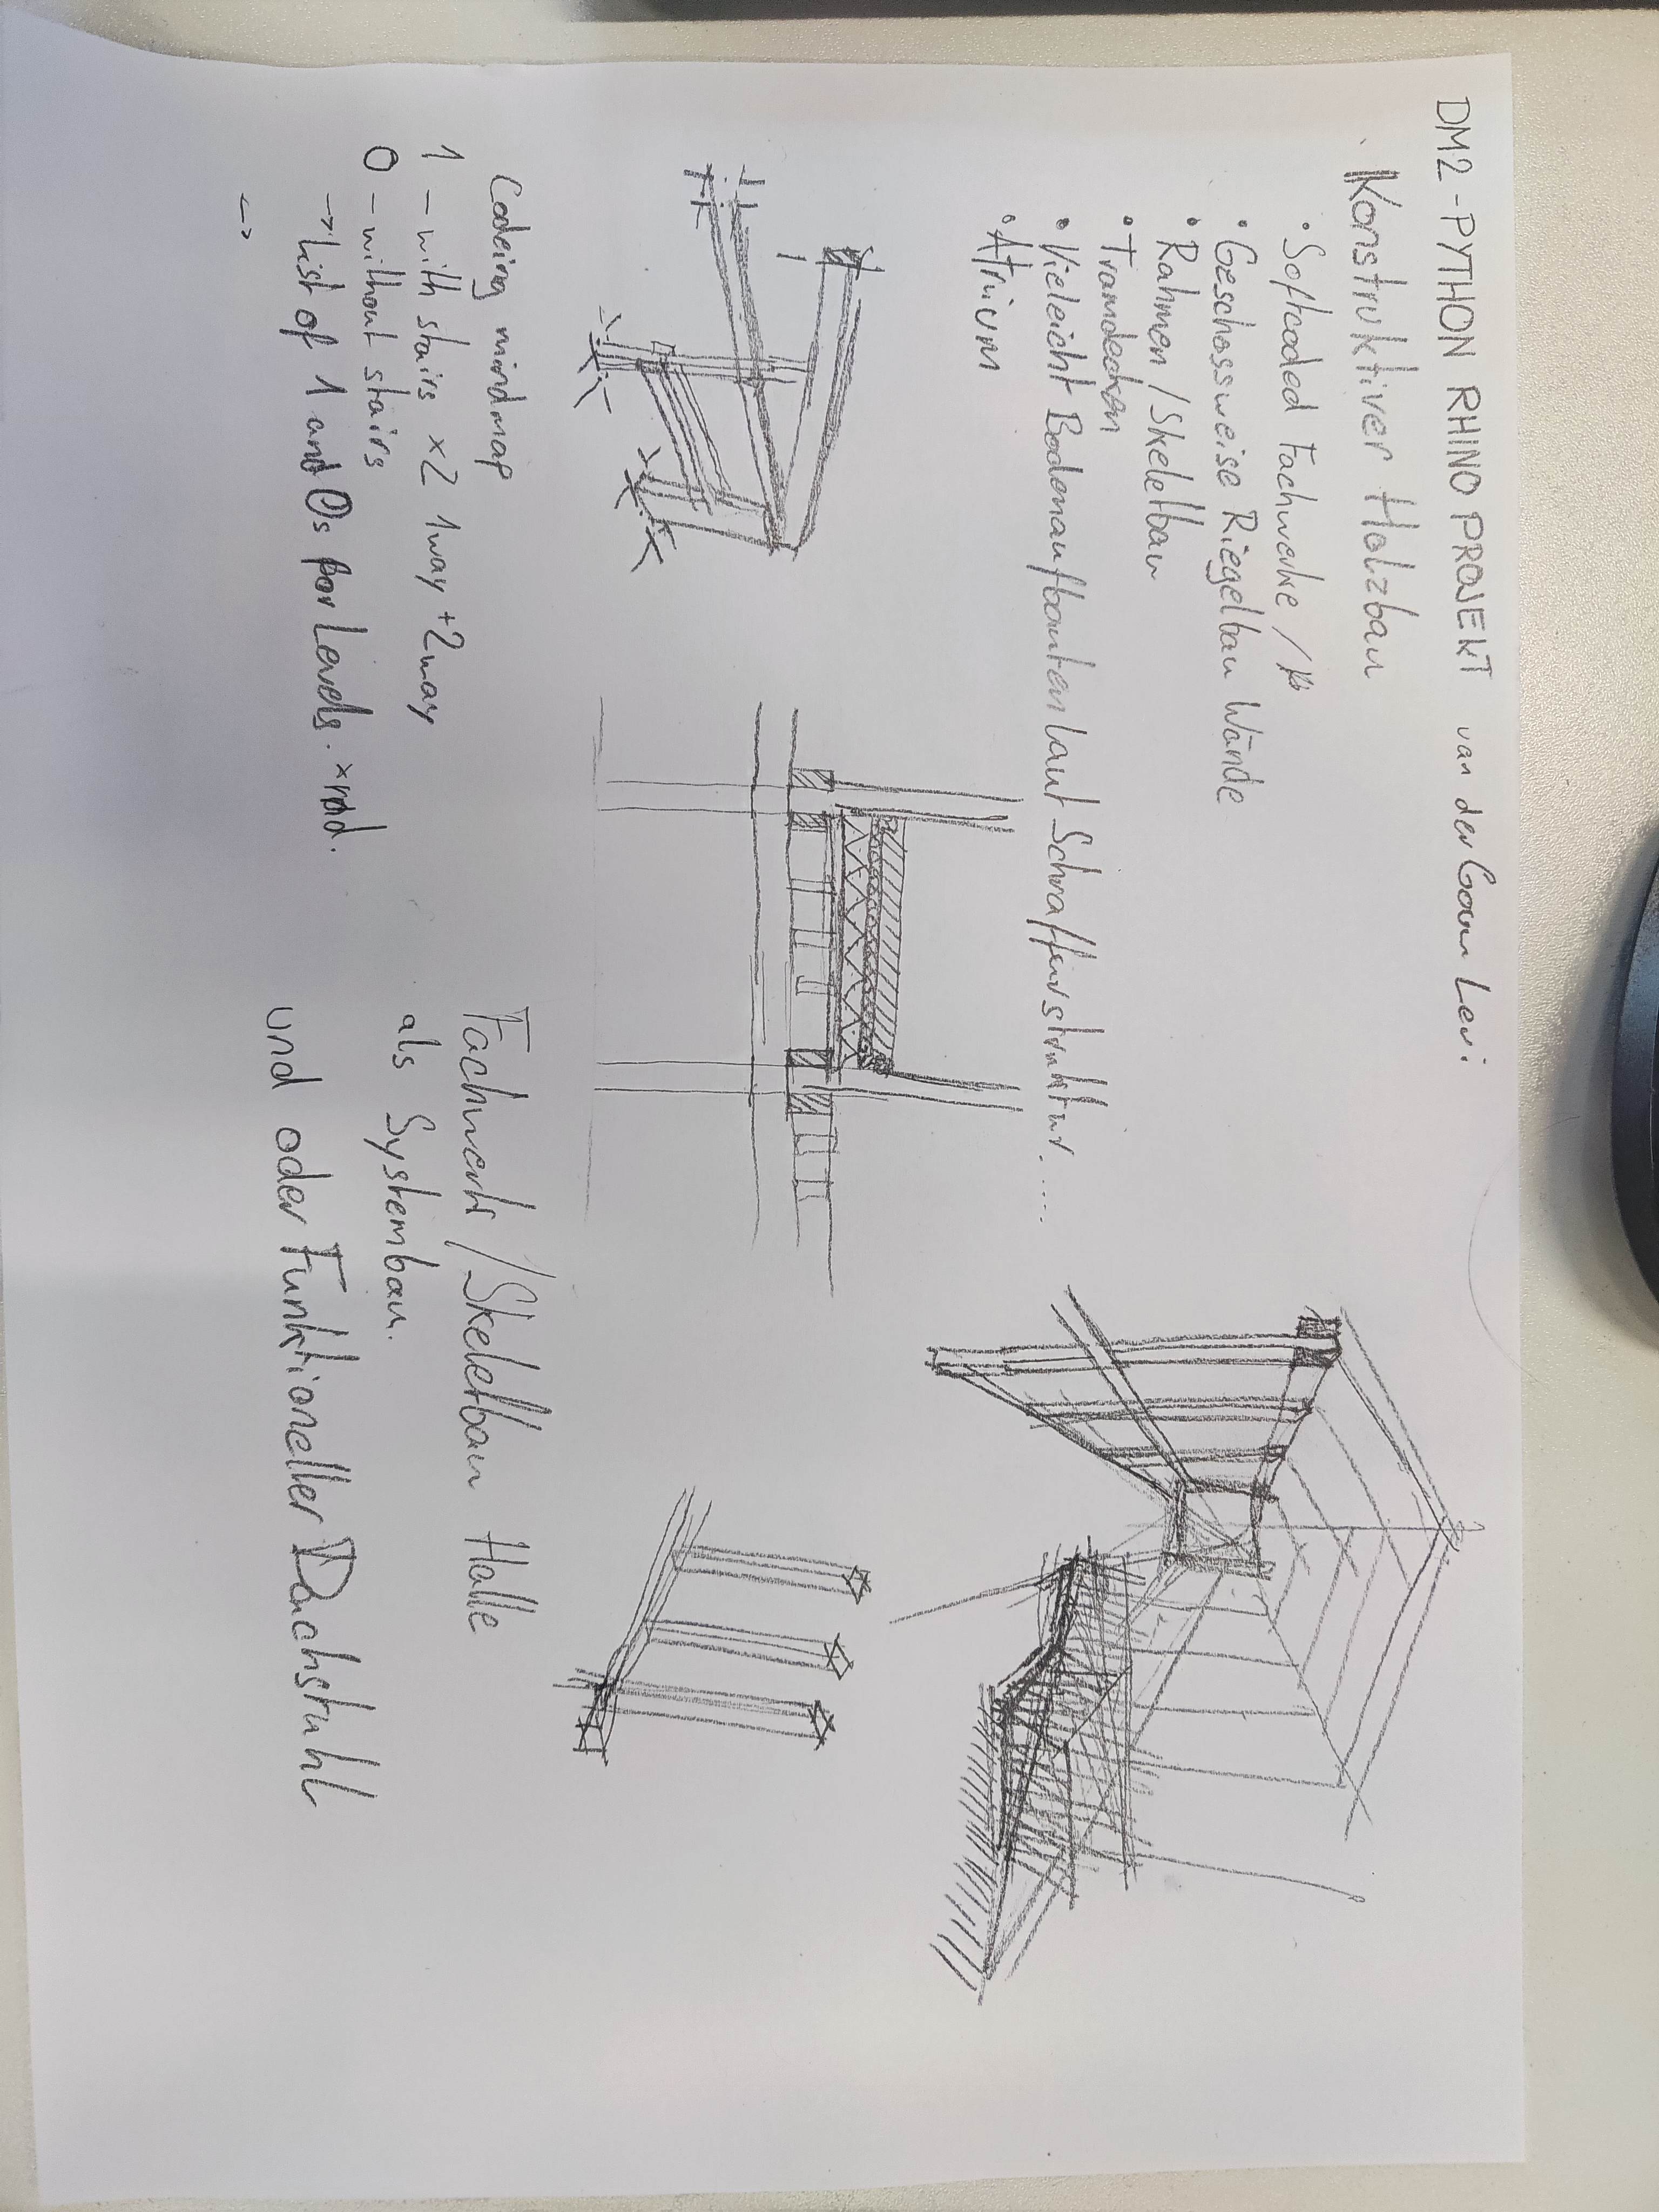 DM2 - PYTHON RHINO PROJEKT van der Gaan Levi
Konstruktiver Holzbau
• Softcoded Fachwerke /
• Geschossweise Riegelbau Wände
• Rahmen / Skelettbau
• Tramdecken
• Vieleicht Bodenaufbauten laut Schraffurstruktur.....
• Atrium
Codeing mindmap
1 - with stairs x2 1way + 2way
0 - without stairs
-> List of 1 and 0s for Levels.
->
Fachwerk / Skelettbau Halle
als Systembau.
und oder Funktioneller Dachstuhl